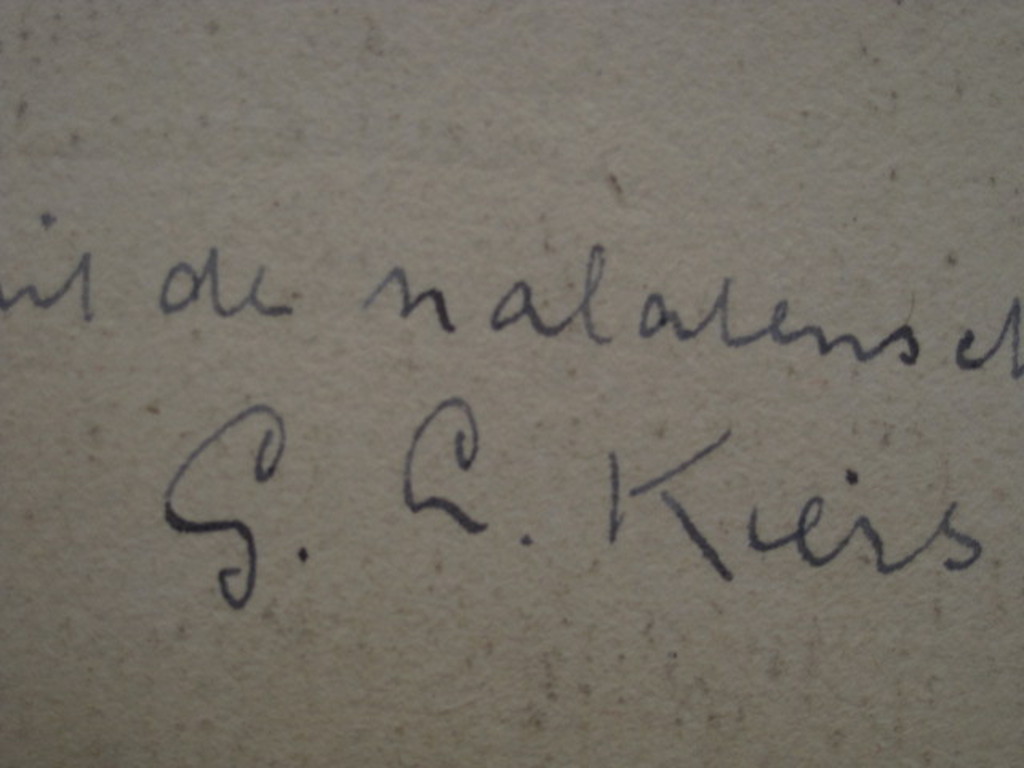 uit de nalatensch
G. L. Kiers